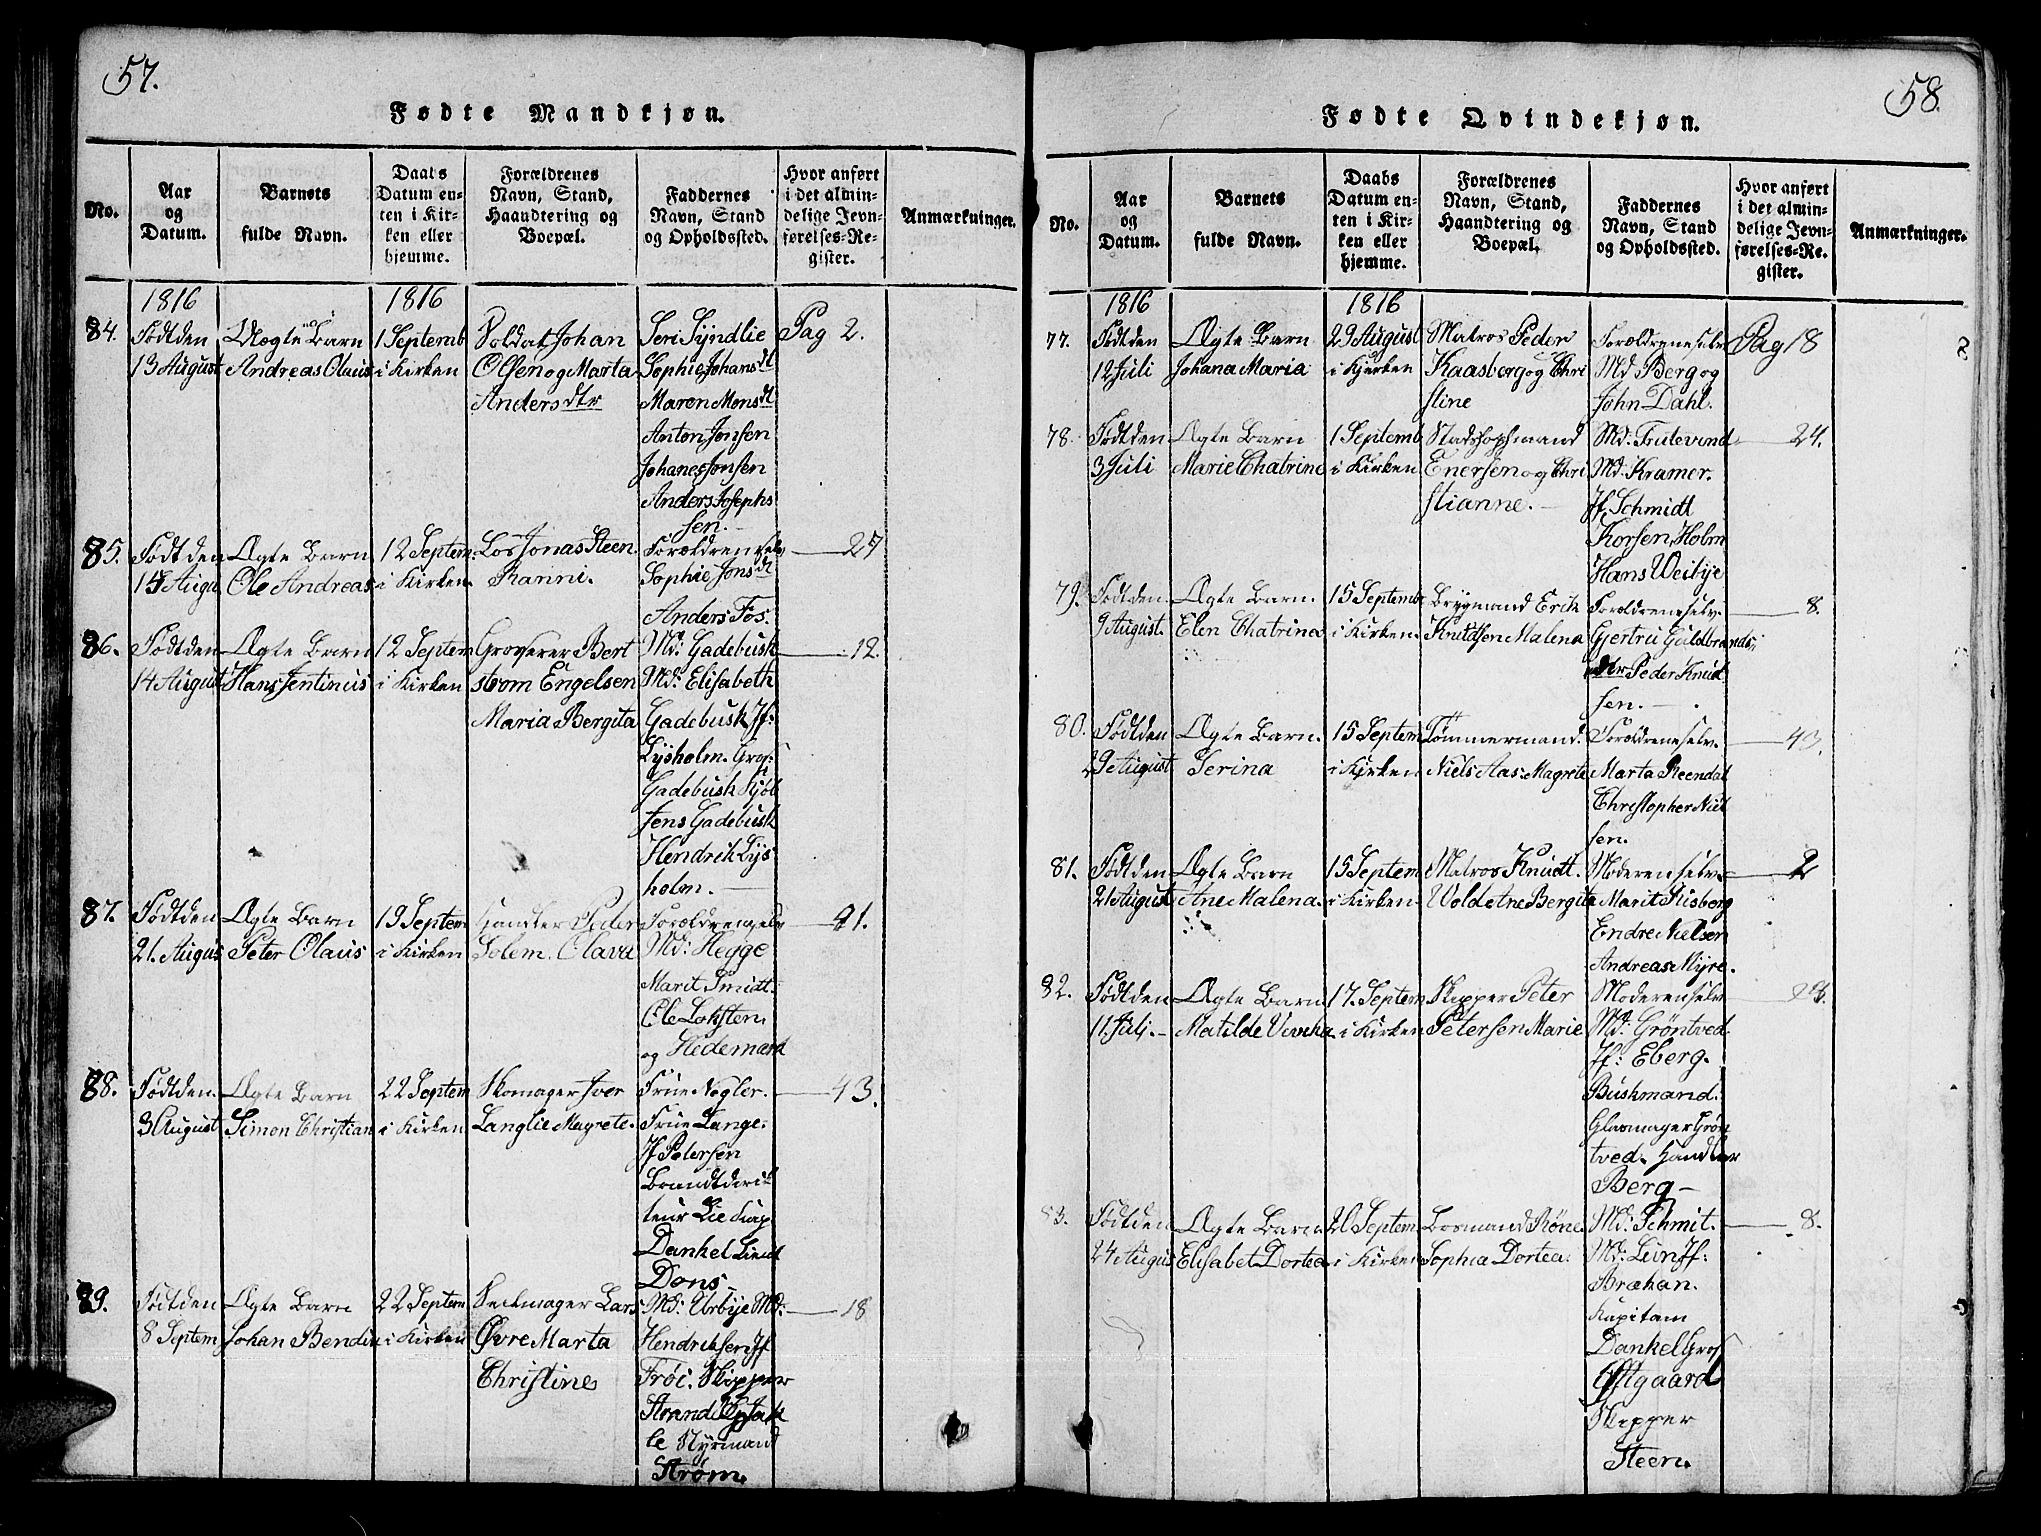 57.
Fødte Mandkjøn.
No.
Aar
og
Datum.
Barnets
fulde Navn.
Daabs
Datum en-
ten i Kir-
ken eller
hjemme.
Forældrenes
Navn, Stand,
Haandtering og
Boepæl.
Faddernes
Navn, Stand
og Opholdssted.
Hvor anført
i det almin-
delige Jevn-
førelses-Re-
gister.
Anmærkninger.
1816
1816
84.
Født den
13 August
Uægte Barn
Andreas Olaus
1 Septemb
i Kirken
Soldat Johan
Olsen og Marta
Andersdtr
Seri Syndlie
Sophie Johansdt
Maren Monsdt
Anton Jonsen
Johanes Jonsen
Anders Josephs
sen.
Pag 2.
85.
Født den
15 Augu
Ægte Barn
Ole Andreas
12 Septem.
i Kirken.
Los Jonas Steen.
Ranni.
Forældrene selv
Sophie Jonsdt
Anders Fos.
27
86.
Født den
14 August
Ægte Barn
Hans Jentinus
12 Septem
i Kirken
Groserer Bert
strom Engelsen
Maria Bergita
Md: Gadebusk
Md: Elisabeth
Gadebusk Jf:
Lysholm. Gros:
Gadebusk Kjöb
Jens Gadebusk
Hendrik Lys
holm.
12.
87.
Født den
21. Augus
Ægte Barn
Peter Olaus
19 Septem
i Kirken
Handler Peder
Solem. Olava
Forældrene selv
Md: Hegge
Marit Smidt.
Ole Loksten.
og Hedemark
41.
88.
Født den.
3 August
Ægte Barn
Simon Christian
22 Septem
i Kirken
Skomager Iver
Langlie Magrete.
Frue Nogler.
Frue Lange.
Jf Petersen
Brandtderik
teur Lie Kap
Dankel Lieut
Dons
43.
89.
Født den
8 Septem
Ægte Barn
Johan Bendix
22 Septem
i Kirken
Seilmager Lars
Øvre Marta
Christine
Md: Urbye Md:
Hendriksen Jf
Froi. Skipper
Strand
le Styrmand
Strøm.
18
58.
Fødte Qvindekjøn.
No.
Aar
og
Datum.
Barnets
fulde Navn.
Daabs
Datum en-
ten i Kir-
ken eller
hjemme.
Forældrenes
Navn, Stand,
Haandtering og
Boepæl.
Faddernes
Navn, Stand
og Opholdssted.
Hvor anført
i det almin-
delige Jevn-
førelses-Re-
gister.
Anmærkninger.
1816
1816
77.
Født den
12 Juli
Ægte Barn
Johana Maria
29 August
i Kjrken
Matros Peder
Kaasberg og Chri
stine
Forældrene selv
Md Berg og
John Dahl.
Pag 18
78.
Født den
3 Juli
Ægte Barn
Marie Chatrine
1 Septemb
i Kirken
Stadshopmand
Enersen og Chri
stianne.
Md: Trutevind
Md: Kramer.
Jf Schmidt
Korsen, Holm
Hans Weibye
24.
79.
Født den.
9 August.
Ægte Barn.
Elen Chatrina
15 Septembe
i Kirken.
Brygmand Erik
Knudtsen Malena
Foroldrene selv.
Gjertru Guldbrands,
dtr Peder Knud
sen.
8.
80.
Født den
29 August
Ægte Barn.
Serina
15 Septem
i Kjrken
Tömmermand.
Niels Aas. Magrete
Foroldrene selv.
Marta Reendal
Christopher Niel
sen.
43.
81.
Født den
21 August
Ægte Barn
Ane Malena.
15 Septem
i Kirken.
Matros Knudt.
Wold Ane Bergita
Moderen selv.
Marit Risberg
Endre Nielsen
Andreas Myre.
2
82.
Født den
11 Juli.
Ægte Barn
Matilde
17. Septem
i Kirken
Skipper Peter
Petersen Marie
Moderen selv
Md: Gröntved.
Jf: Eberg.
Buskmand.
Glasmager Grön
tved. Handler
Berg
28.
83.
Født den
24 Augus
Ægte Barn
Elisabet Dortea
20 Septem.
i Kirken
Bosmand Röne
Sophia Dortea.
Md: Schmit.
Md: Lun Jf:
Bræhan.
Kapitam
Dankel Gros
Oftgaard
Skipper
Steen.
8.